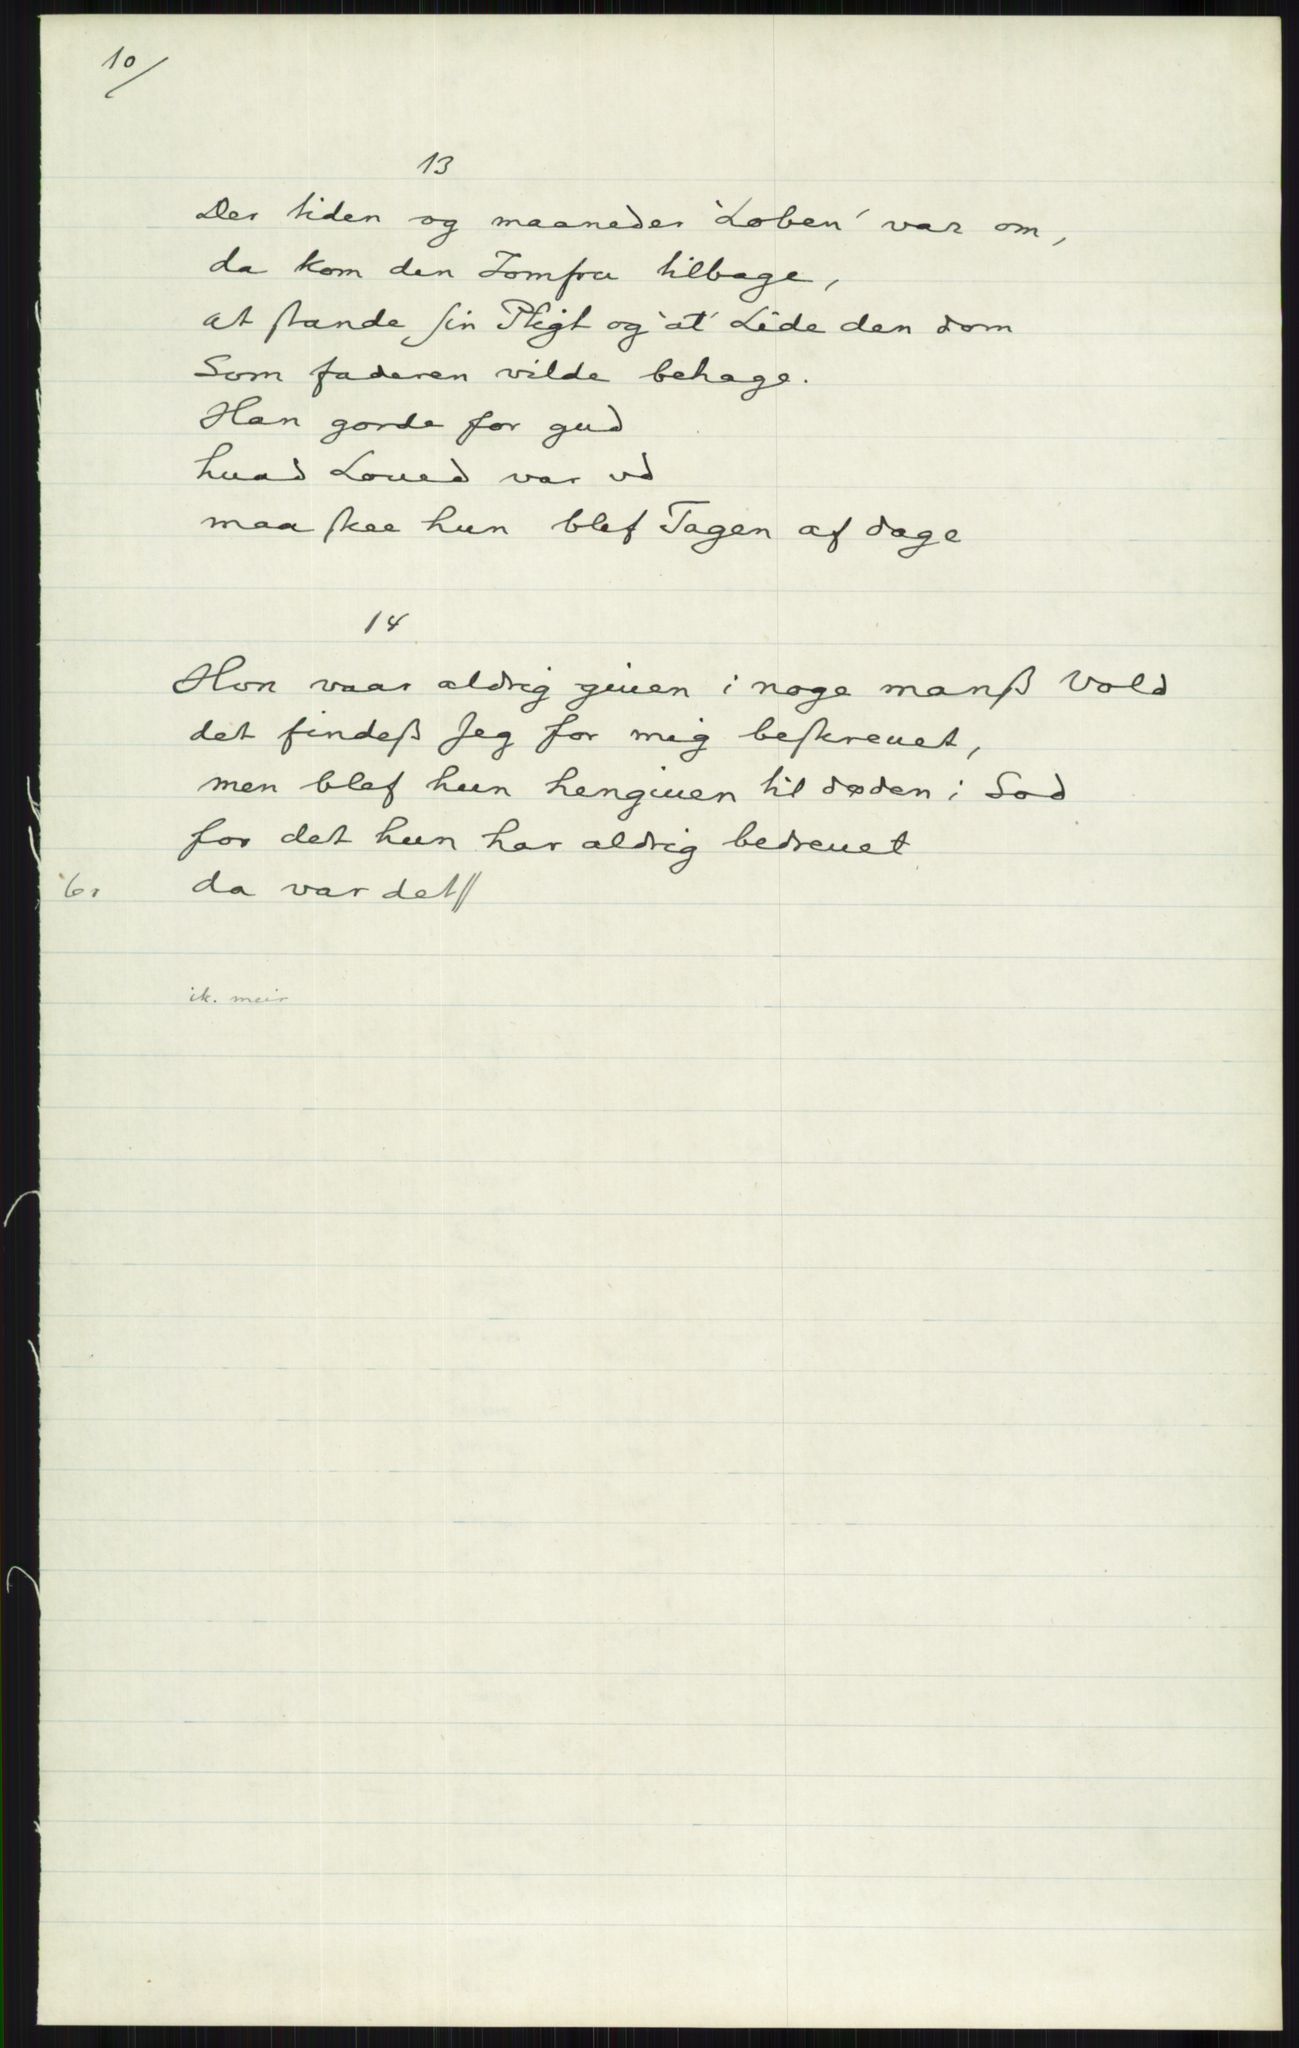 10/
13
Der tiden og maaneder 'Loben' var om,
da kom den Jomfru tilbage,
at ſtande ſin Pligt og 'at' Lide den dom
Som faderen vilde behage.
Han gorde for gud
huad Loued var vd
maa ſkee hun blef Tagen af dage
14
Hon vaar aldrig giuen i noge manß Vold
det findeß Jeg for mig beſkreuet,
men blef hun hengiuen til døden i Sod
for det hun har aldrig bedreuet
6r da var det//
ik. meir